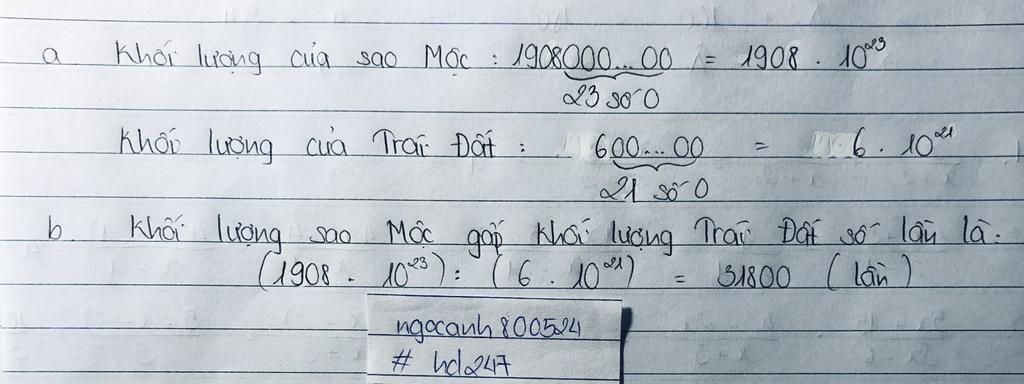 a Khối lượng của sao Mộc : 1908000...00 = 1908 . 10²³
23 số 0
Khối lượng của Trái Đất : 600....00 = 6 . 10²¹
21 số 0
b. Khối lượng sao Mộc gấp khối lượng Trái Đất số lần là:
(1908 . 10²³) : (6 . 10²¹) = 31800 (lần)
ngocanh800524
# hd247